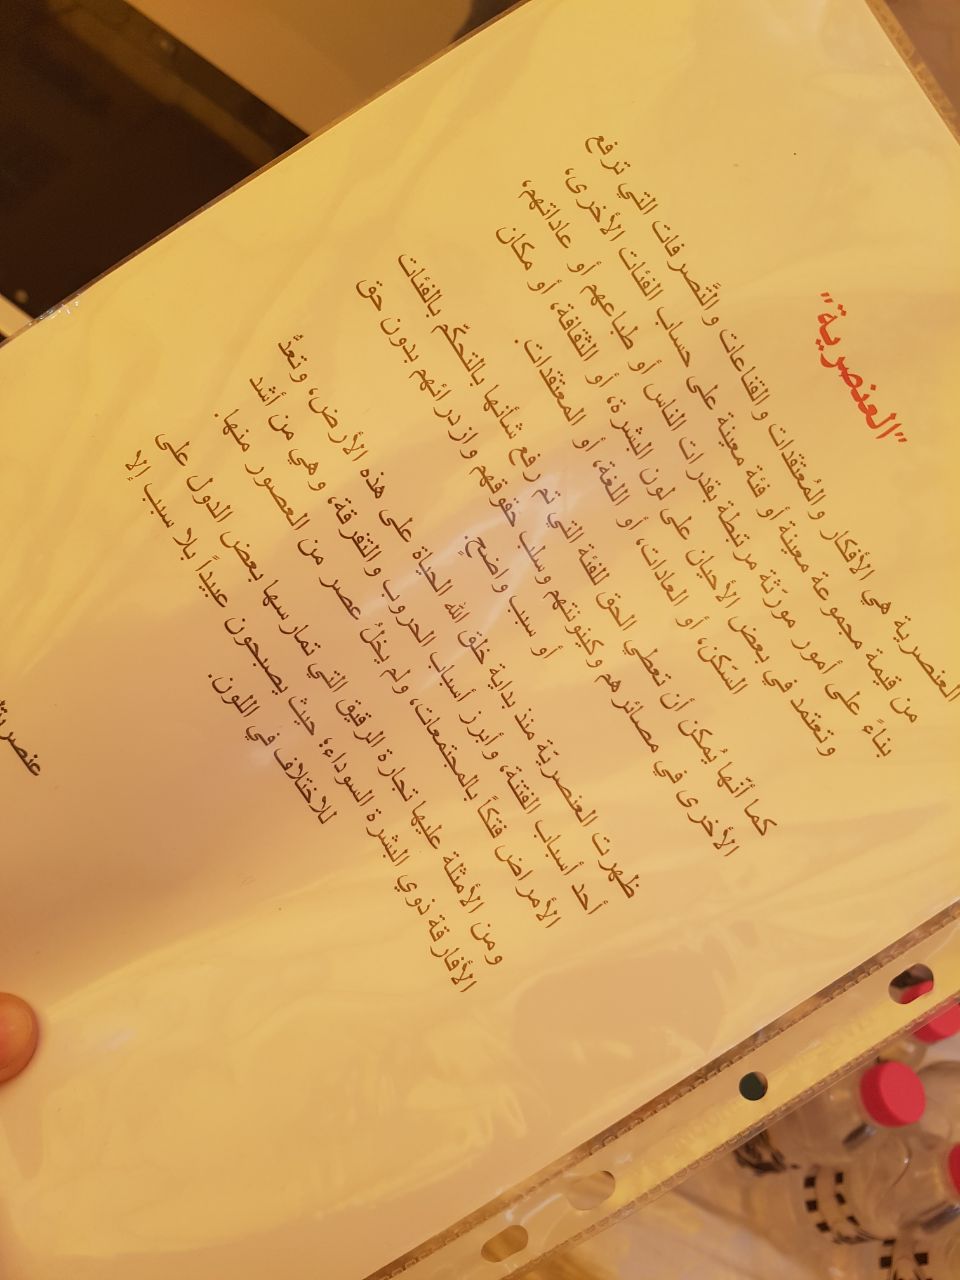 "العنصرية"
العنصرية هي الأفكار والمُعتقدات والقناعات والتَّصرفات التي ترفع
من قيمة مجموعة معينة أو فئة معينة على حساب الفئات الأخرى،
بناءً على أمور مورّثة مرتبطة بقدرات الناس أو طباعهم أو عاداتهم،
وتعتمد في بعض الأحيان على لون البشرة، أو الثقافة، أو مكان
السّكن، أو العادات، أو اللغة، أو المعتقدات.
كما أنّها يُمكن أن تعطي الحق للفئة التي تم رفع شأنها بالتحكّم بالفئات
الأخرى في مصائرهم وكينونتهم وسلب حقوقهم وازدرائهم بدون حق
أو سبب واضحٍ.
ظهرت العنصريّة منذ بداية خلق الله الحياة على هذه الأرض، وتعدُّ
أحد أسباب الفتنة، وأبرز أسباب الحروب والتفرقة، وهي من أشد
الأمراض فتكاً بالمجتمعات، ولم يخلُ عصر من العصور منها.
ومن الأمثلة عليها تجارة الرقيق التي تمارسها بعض الدول على
الأفارقة ذوي البشرة السوداء؛ حيث يصبحون عبيداً بلا سبب إلا
للاختلاف في اللون.